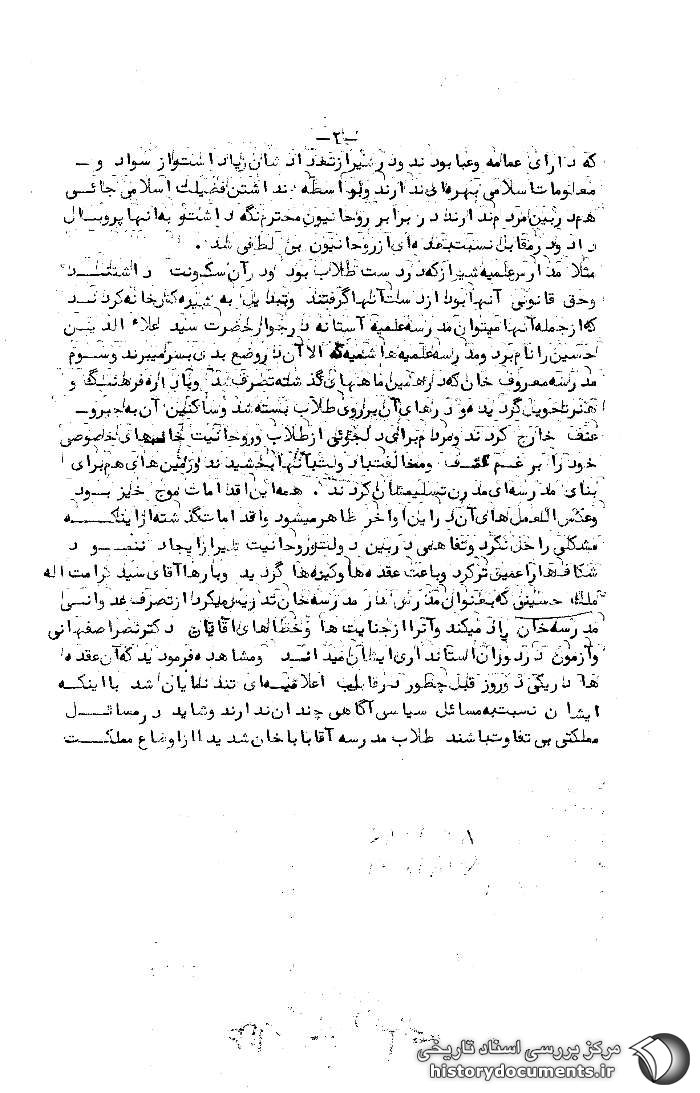 -۲-
که دارای عمامه وعبا بودند ودرشیرازتعدادشان زیاد است واز سواد و -
معلومات اسلامی بهره ای ندارند وبواسطه نداشتن فضیلت اسلامی جائی
هم دربین مردم ندارند در برابر روحانیون محترم نگه داشت و به آنها پروبال
داد ودرمقابل نسبت به عده ای از روحانیون بی لطفی شد .
مثلا مدارس علمیه شیراز که در دست طلاب بود ودرآن سکونت داشتند
وحق قانونی آنها بود از دست آنها گرفتند وتبدیل به کارخانه کردند
که ازجمله آنها میتوان مدرسه علمیه آستانه درجوار حضرت سید علاء الدین
حسین را نام برد ومدرسه علمیه هاشمیه که الان در وضع بدی بسر میبرند وسوم
مدرسه معروف خان که در همین ماههای گذشته تصرف شد وباداره فرهنگ و
هنر تحویل گردید ودرهای آن بروی طلاب بسته شد وساکنین آن به جبرو-
عنف خارج کردند ومردم برای دلجوئی ازطلاب وروحانیت خانه های خصوصی
خود را برغم ومخالفت با دولت به آنها بخشیدند وزمین های هم برای
بنای مدرسه ای مدرن تسلیمشان کردند . همه این اقدامات موج خیز بود
وعکس العمل های آن در این اواخر ظاهر میشود واقدامات گذشته از اینکه
مشکلی را حل نکرد وتفاهمی دربین دولت وروحانیت شیراز ایجاد ننمود
شکافها را عمیق تر کرد وباعث عقده ها وکینه ها گردید وبارها آقای سید کرامت اله
ملک حسینی که بعنوان مدرس در مدرسه خان تدریس میکرد از تصرف عدوانی
مدرسه خان یاد میکند وآنرا از جنایت ها وخطاهای آقایان دکتر نصر اصفهانی
وآزمون در دوران استانداری ایشان میدانند ومشاهده فرمودید که آن عقده
ها در یکی دو روز قبل چطور در قالب اعلامیه ای تند نمایان شد با اینکه
ایشان نسبت به مسائل سیاسی آگاهی چندان ندارند وشاید در مسائل
مملکتی بی تفاوت باشند طلاب مدرسه آقاباباخان شدیدا از اوضاع مملکت
مرکز بررسی اسناد تاریخی
historydocuments.ir